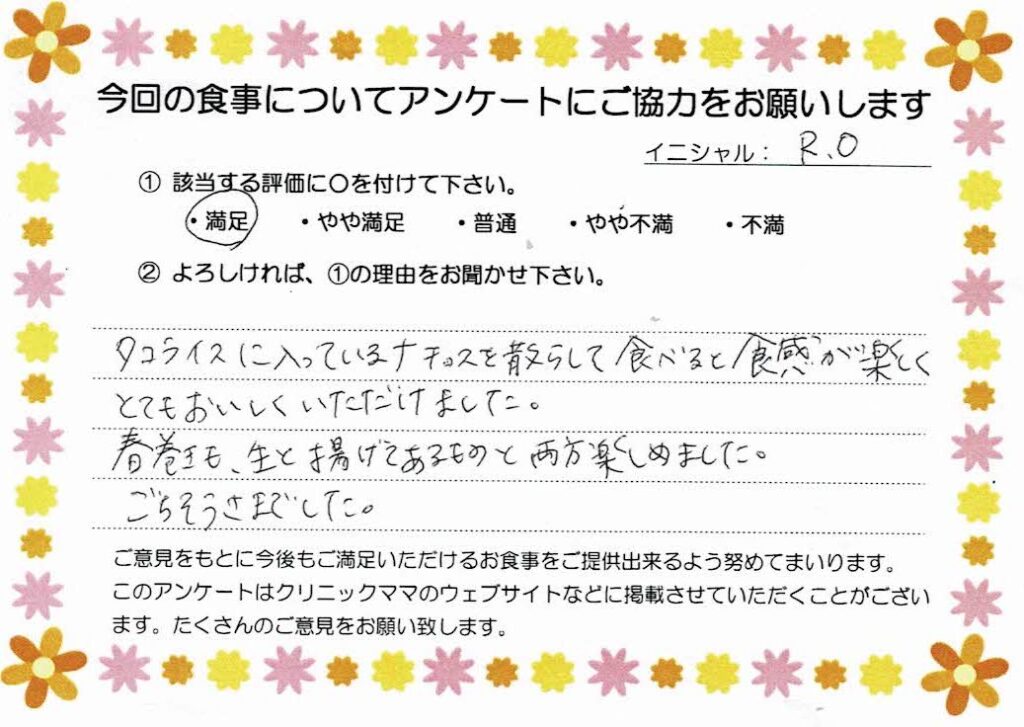 今回の食事についてアンケートにご協力をお願いします
イニシャル： R.O
① 該当する評価に〇を付けて下さい。
・満足 ・やや満足 ・普通 ・やや不満 ・不満
② よろしければ、①の理由をお聞かせ下さい。
タコライスに入っているナチョスを散らして食べると食感が楽しく
とてもおいしくいただけました。
春巻きも、生と揚げてあるものと両方楽しめました。
ごちそうさまでした。
ご意見をもとに今後もご満足いただけるお食事をご提供出来るよう努めてまいります。
このアンケートはクリニックママのウェブサイトなどに掲載させていただくことがござい
ます。たくさんのご意見をお願い致します。